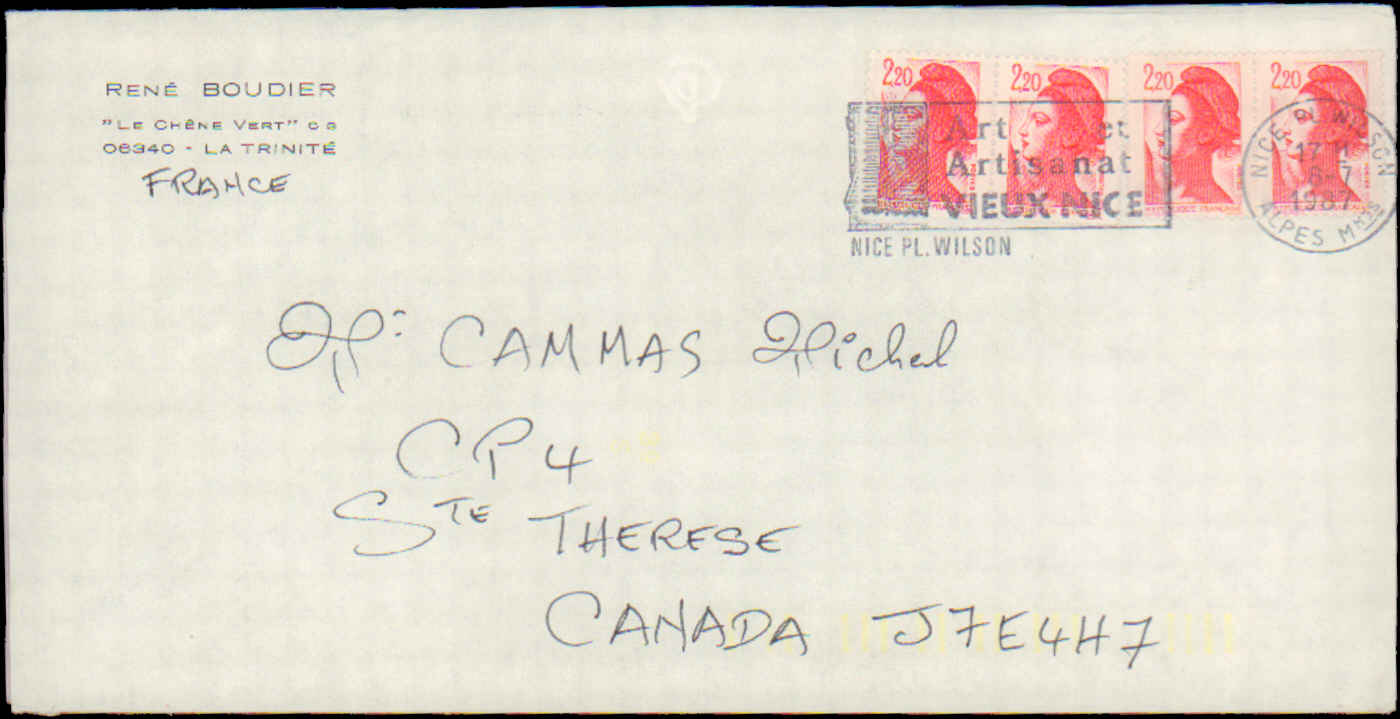 RENÉ BOUDIER
"LE CHÊNE VERT" C 8
06340 - LA TRINITÉ
FRANCE
2,20 2,20 2,20 2,20
Art et
Artisanat
VIEUX NICE
NICE PL. WILSON
NICE PL. WILSON
17 H
6-7
1987
ALPES MMES
Mr CAMMAS Michel
CP 4
STE THERESE
CANADA J7E4H7